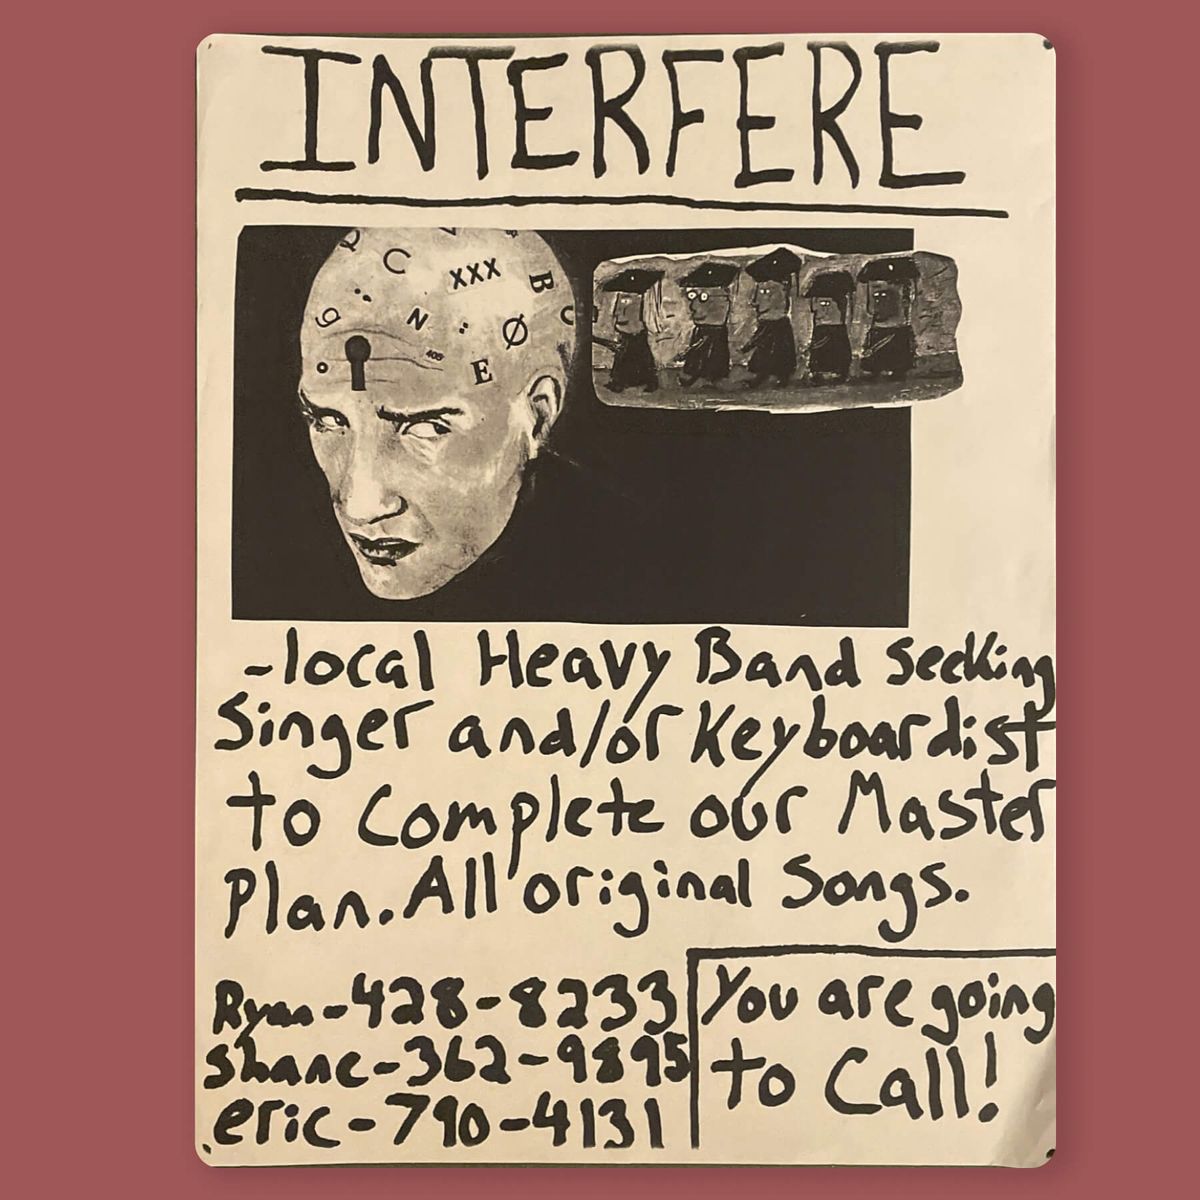 INTERFERE
Q C V $
XXX B
g N Ø C
405
E
-local Heavy Band Seeking
Singer and/or Keyboardist
to Complete our Master
Plan. All original Songs.
Ryan-428-8233
Shane-362-9895
eric-790-4131
You are going
to Call!